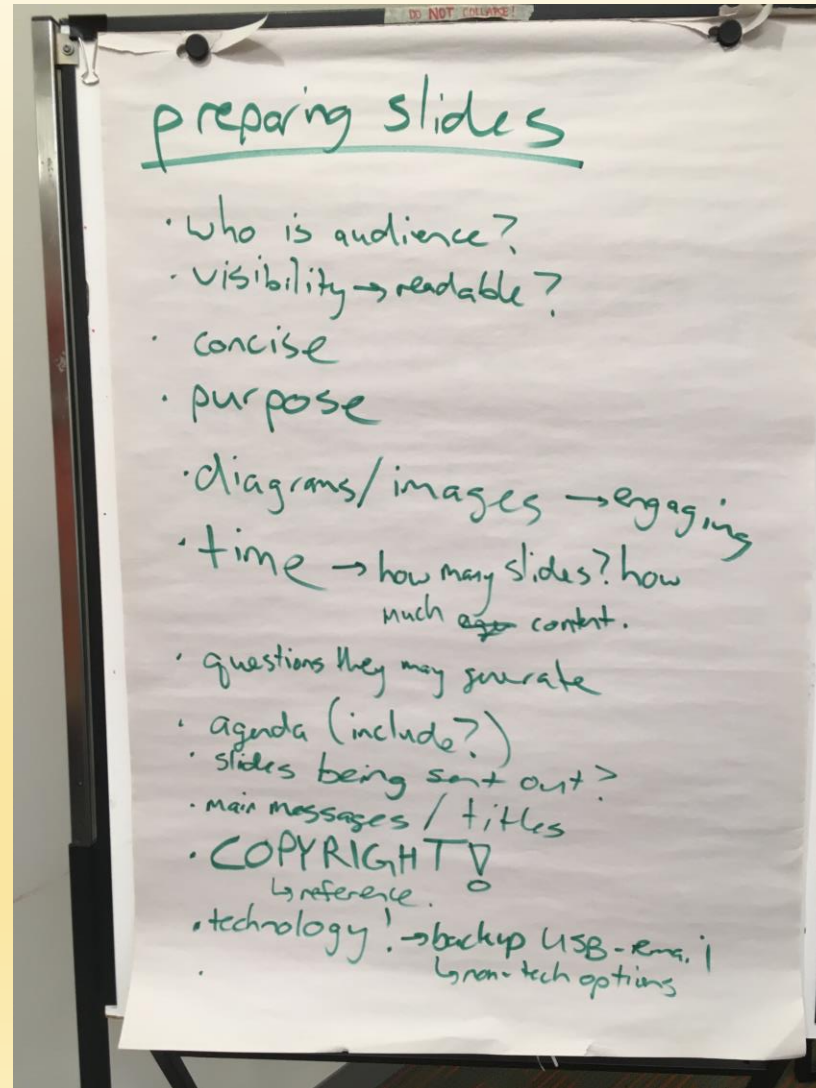 DO NOT COLLAPSE!
preparing slides
· who is audience?
· visibility → readable?
· concise
· purpose
· diagrams/images → engaging
· time → how many slides? how
much content.
· questions they may generate
· agenda (include?)
· slides being sent out?
· main messages / titles
· COPYRIGHT!
↳ reference.
· technology! → backup USB - email
↳ non-tech options
·